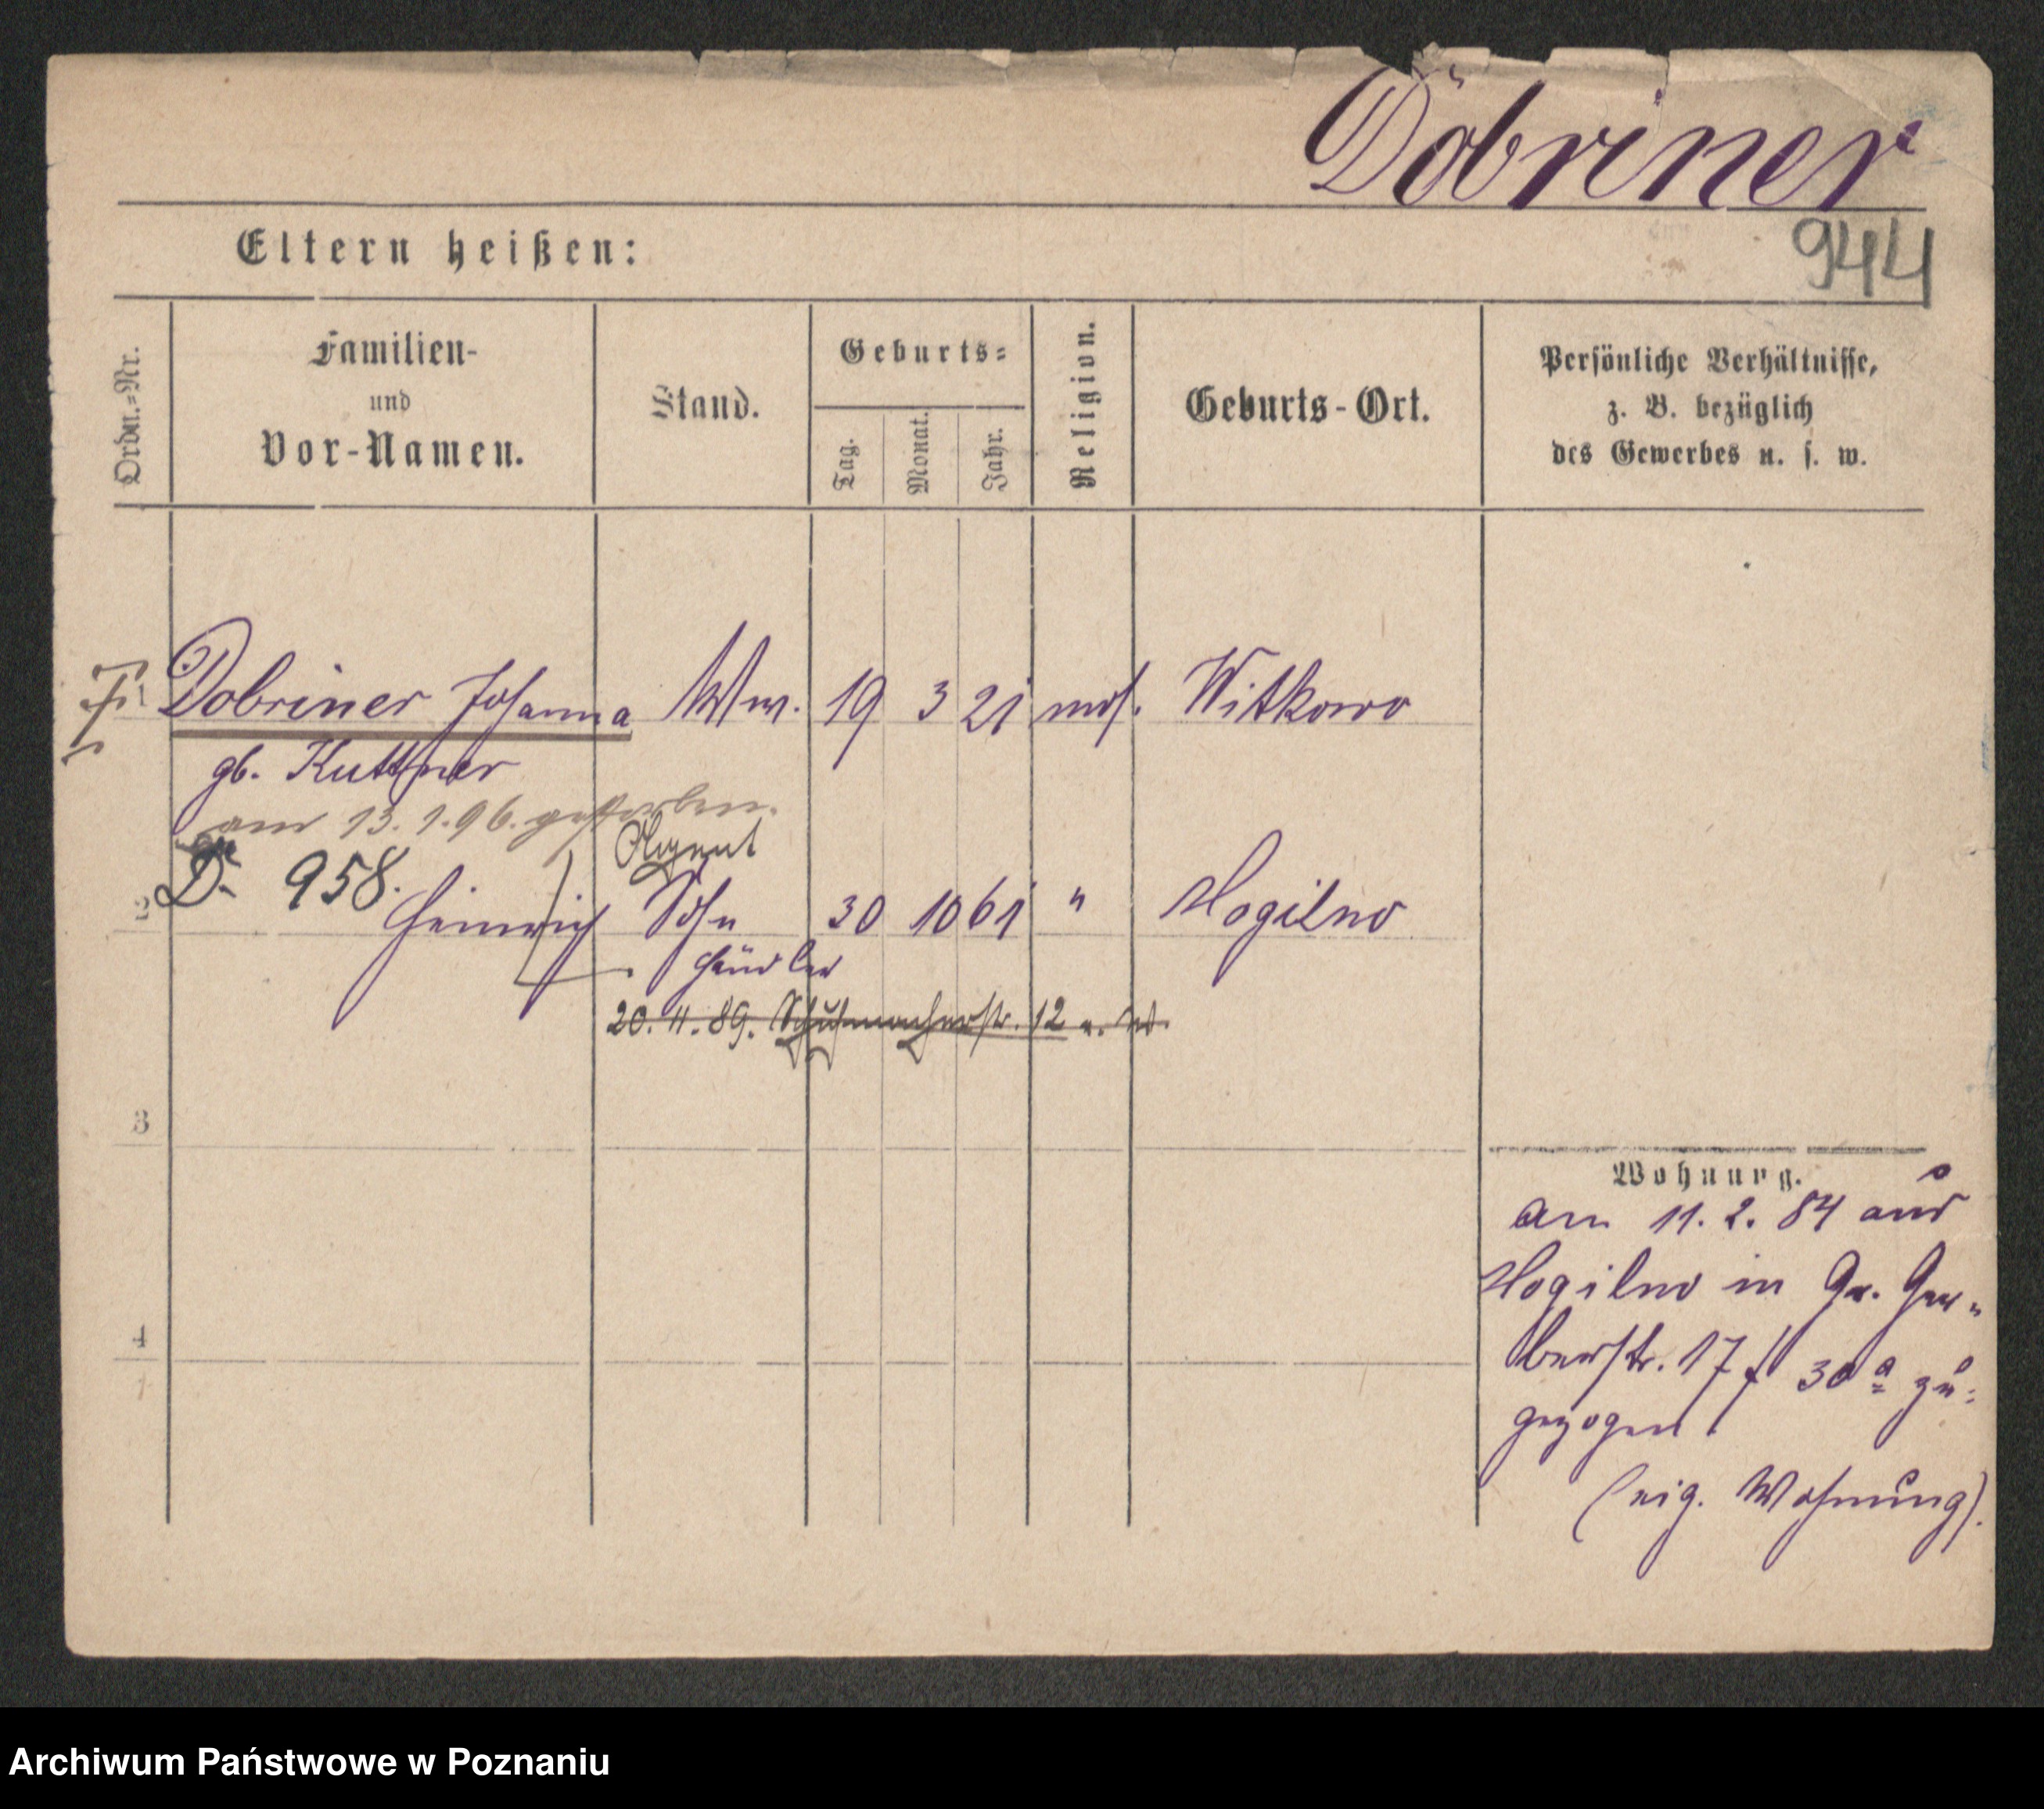 Döbriner
944
Eltern heißen:
Ordn.=Nr.
Familien-
und
Vor-Namen.
Stand.
Geburts=
Tag.
Monat.
Jahr.
Religion.
Geburts-Ort.
Persönliche Verhältnisse,
z. B. bezüglich
des Gewerbes u. s. w.
1 Dobriner Johanna Ww. 19 3 21 mos. Witkowo
gb. Kuttner
am 13.1.96. gestorben.
Agent
2 D. 958. Heinrich Sohn 30 10 61 " Mogilno
Händler
20. 11. 89. Schuhmacherstr. 12 u. W.
3
4
Wohnung.
am 11. 2. 84 aus
Mogilno in Gr. Ger-
berstr. 17 f 30 a zu=
gezogen
(eig. Wohnung).
Archiwum Państwowe w Poznaniu